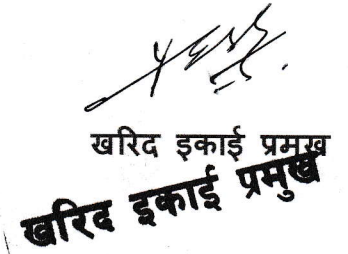 खरिद इकाई प्रमुख
खरिद इकाई प्रमुख